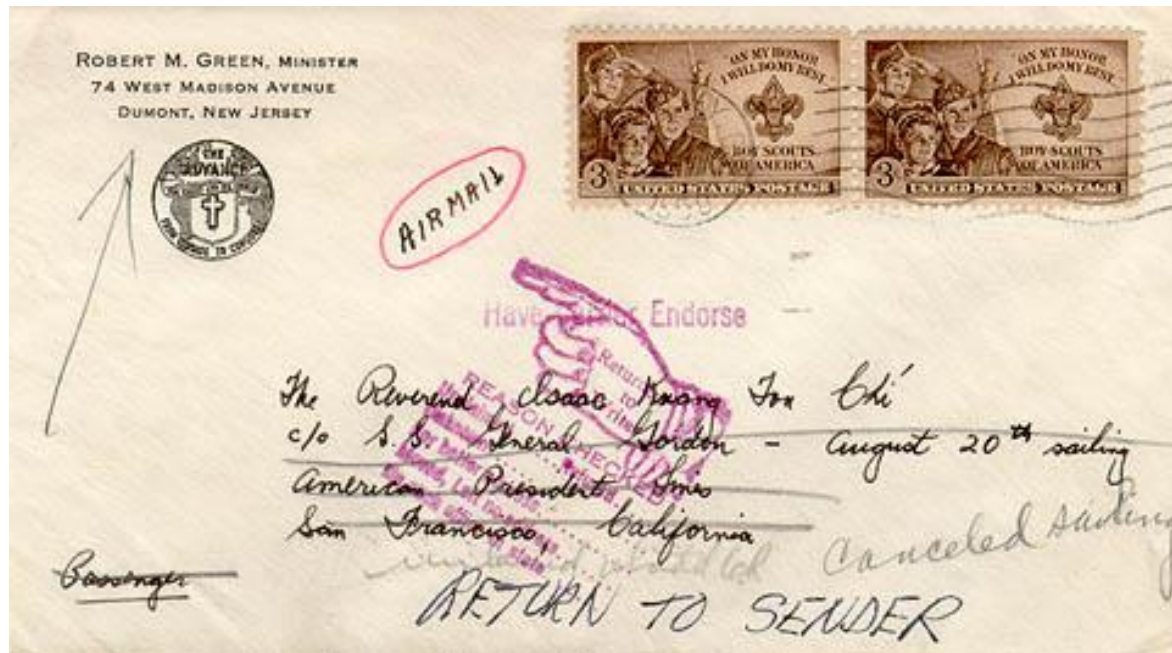 ROBERT M. GREEN, MINISTER
74 WEST MADISON AVENUE
DUMONT, NEW JERSEY
THE
ADVANCE
ON MY HONOR
I WILL DO MY BEST
BOY SCOUTS
OF AMERICA
3¢ UNITED STATES POSTAGE
ON MY HONOR
I WILL DO MY BEST
BOY SCOUTS
OF AMERICA
3¢ UNITED STATES POSTAGE
AIRMAIL
Have Carrier Endorse
Return
to
Writer
REASON CHECKED
The Reverend Isaac Kuang Fon Chi
c/o S.S. General Gordon - August 20th sailing
American President Lines
San Francisco, California
Canceled sailing
Passenger
RETURN TO SENDER